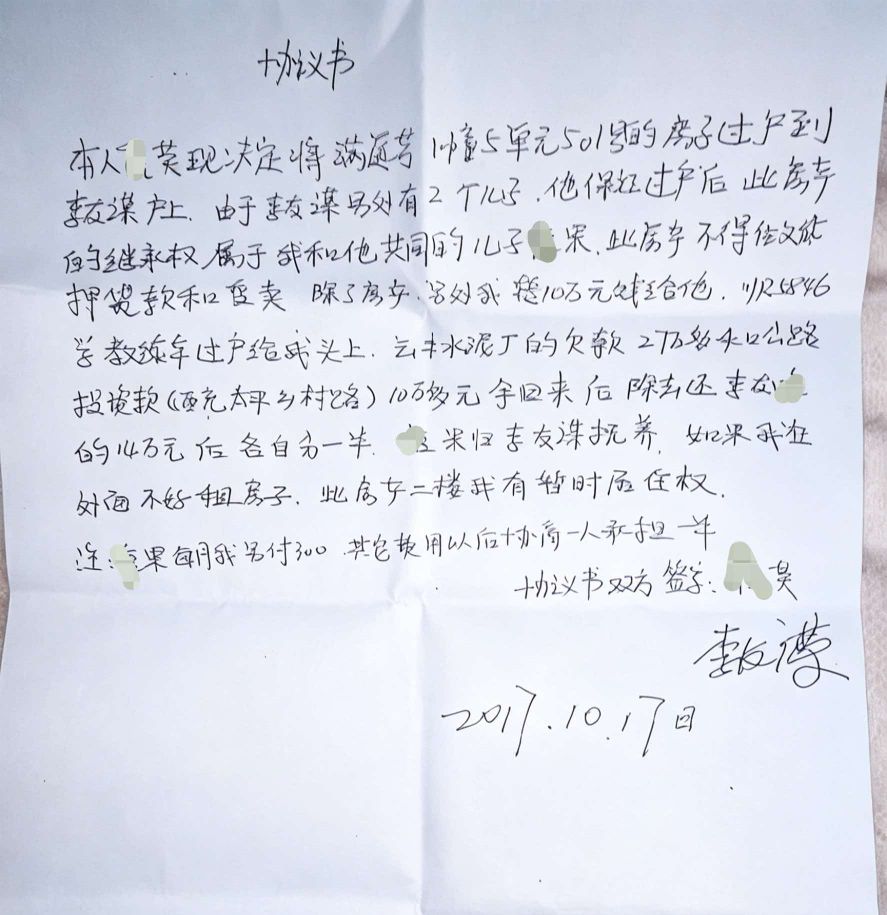 协议书
本人 英现决定将满 1幢5单元501号的房子过户到
李友谋户上. 由于李友谋另外有2个儿子. 他保证过户后 此房产
的继承权属于我和他共同的儿子 果. 此房产不得 抵
押贷款和 卖 除了房产. 另外我 10万元 给他. 川R5846
学教练车过户给我头上. 水泥厂的欠款2万多 水口公路
投资款(西充太平乡村路)10万多元 回来后 除去还李友
的14万元后各自分一半. 果归李友谋抚养. 如果我在
外面不好租房子. 此房产二楼我有暂时居住权.
注: 果每月我另付300 其它费用以后协商一人承担一半
协议书双方签字: 英
李友谋
2017.10.17日